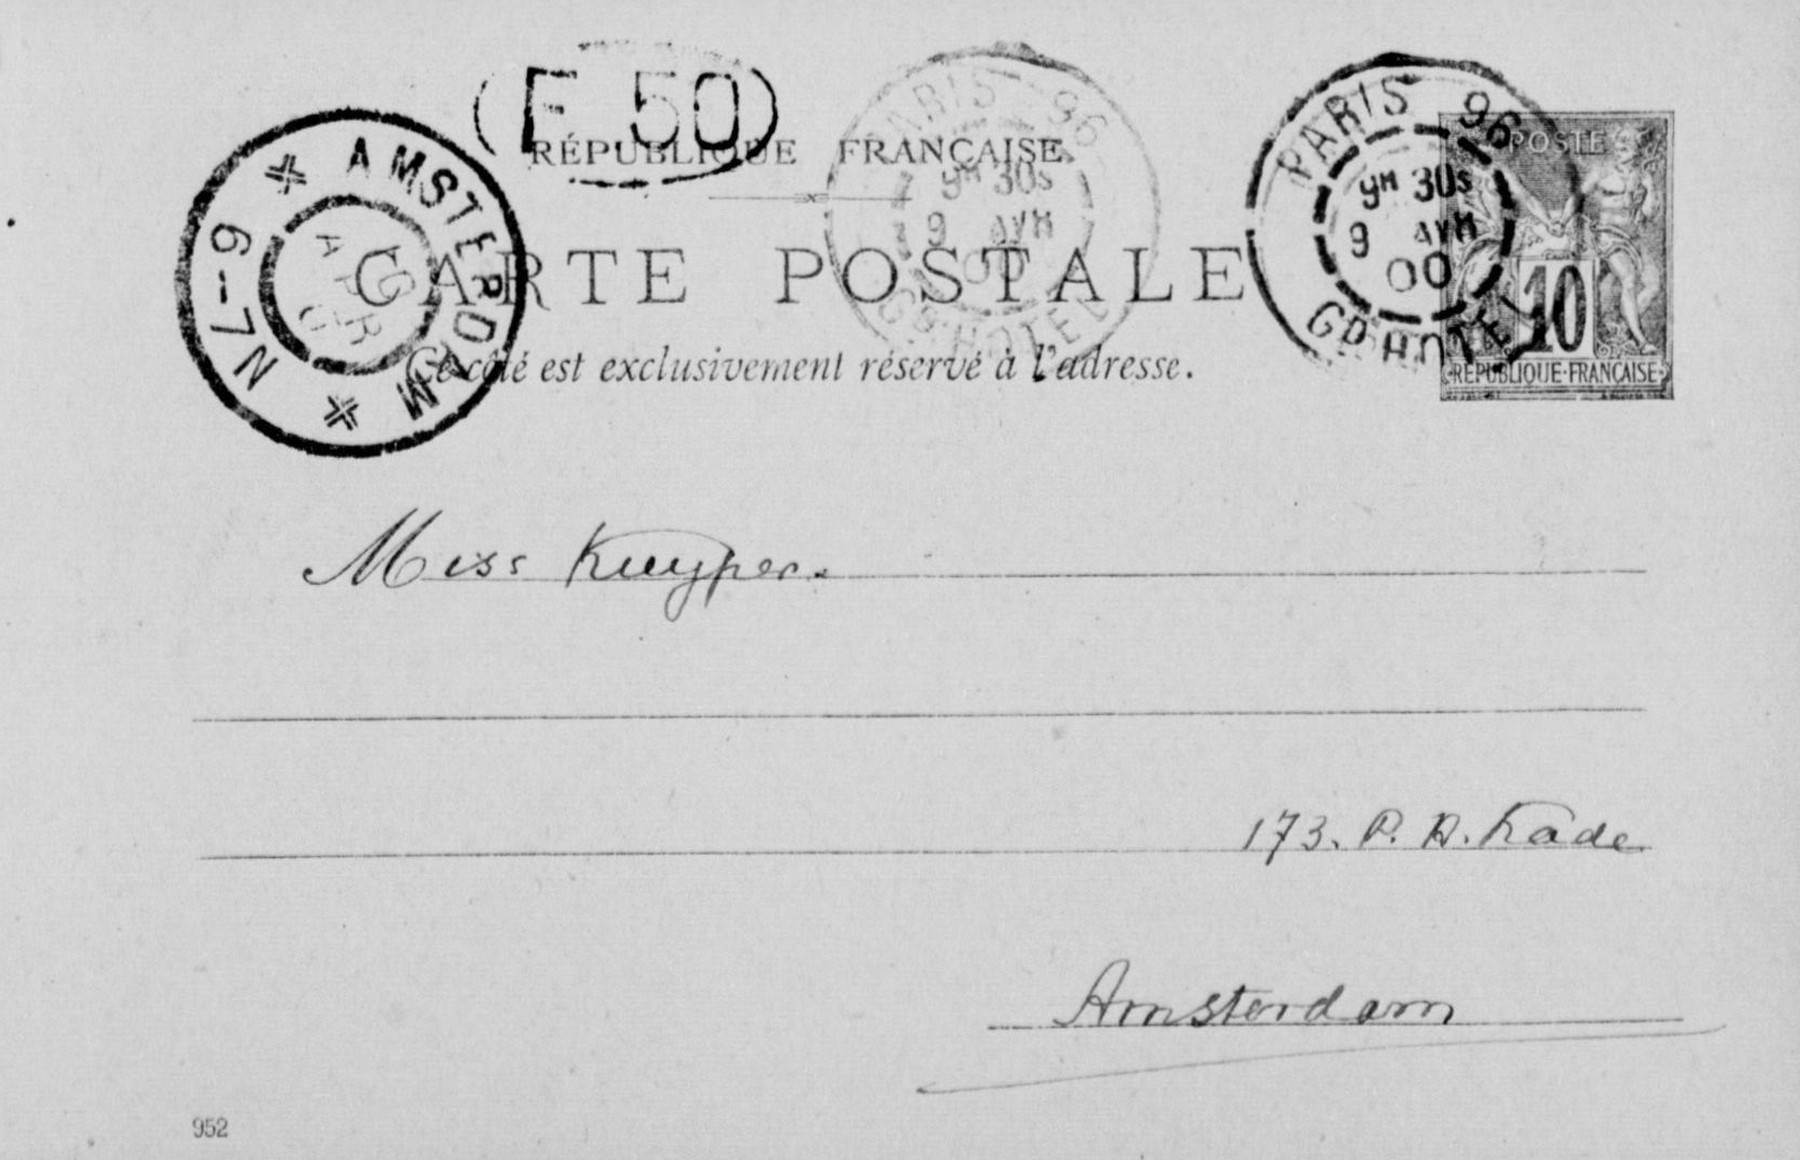 F 50
RÉPUBLIQUE FRANÇAISE
CARTE POSTALE
Ce côté est exclusivement réservé à l'adresse.
AMSTERDAM
N7-9
10
APR
PARIS 96
9H 30S
9 AVR
00
GD HOTEL
PARIS 96
9H 30S
9 AVR
00
GD HOTEL
POSTE
10
RÉPUBLIQUE·FRANÇAISE
Miss Kuyper.
173. P. H. Kade
Amsterdam
952